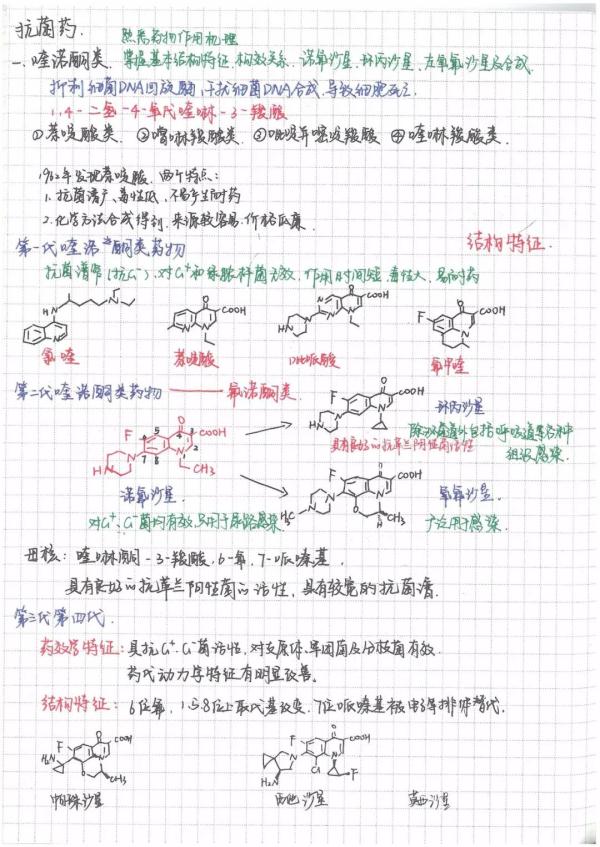 抗菌药.
熟悉药物作用机理
一、喹诺酮类. 掌握基本结构特征、构效关系. 诺氧沙星、环丙沙星、左氧氟沙星及合成.
抑制细菌DNA回旋酶,干扰细菌DNA合成,导致细胞死亡.
1,4-二氢-4-氧代喹啉-3-羧酸
①萘啶酸类. ②噌啉羧酸类. ③吡啶并嘧啶羧酸 ④喹啉羧酸类.
1962年发现萘啶酸. 两个特点:
1. 抗菌谱广、毒性低、不易产生耐药
2. 化学方法合成得到,来源较容易.价格低廉.
第一代喹诺酮类药物
结构特征.
抗菌谱窄(抗G-),对G+和绿脓杆菌无效,作用时间短,毒性大,易耐药
HN N N
氯喹
N N O COOH
萘啶酸
HN N N N N O COOH
吡哌酸
F N O COOH
氟甲喹
第二代喹诺酮类药物 —— 氟诺酮类.
F O COOH HN N N
环丙沙星
除泌尿道外包括呼吸道等各种组织感染.
具有良好的抗革兰阴性菌活性
F O COOH HN N N CH3
5 4 3 6 7 8 1 2
诺氧沙星
对G+、G-菌均有效,只用于尿路感染.
F O COOH H3C N N N O H CH3
氧氟沙星.
广泛用于感染
母核: 喹啉酮-3-羧酸,6-氟,7-哌嗪基.
具有良好的抗革兰阴性菌的活性,具有较宽的抗菌谱.
第三代第四代.
药效学特征: 具抗G+、G-菌活性,对支原体、军团菌及分枝菌有效.
药代动力学特征有明显改善.
结构特征: 6位氟,1.5.8位上取代基改变,7位哌嗪基被电子等排体替代.
F O COOH H2N N O CH3
帕珠沙星
F O COOH N N Cl H2N F
西他沙星
莫西沙星